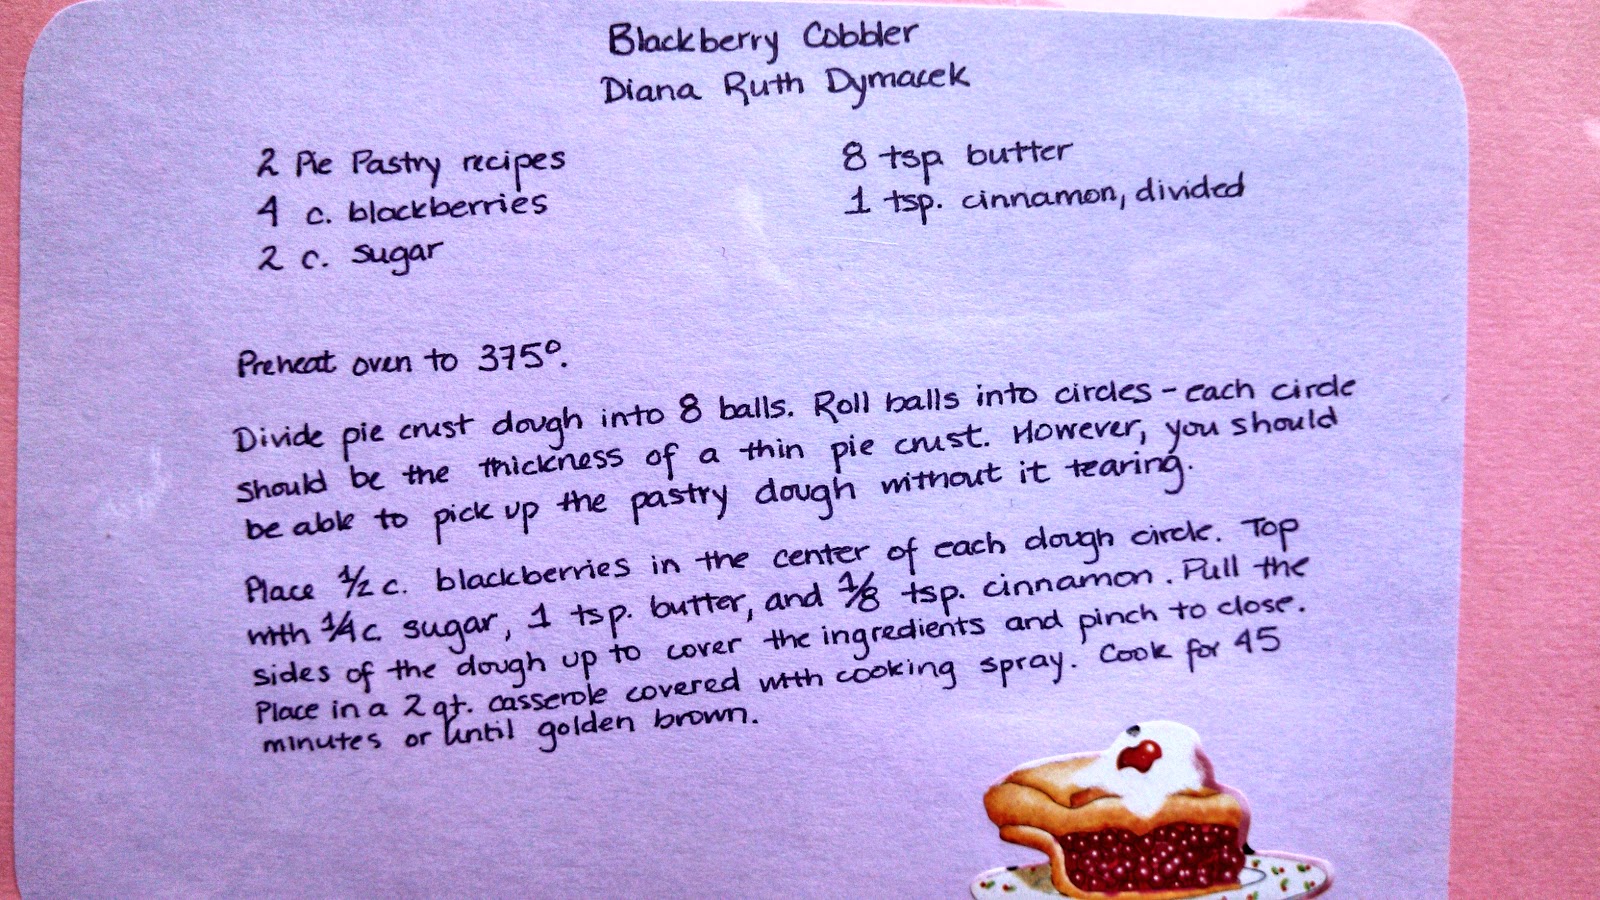 Blackberry Cobbler
Diana Ruth Dymacek
2 Pie Pastry recipes
4 c. blackberries
2 c. sugar
8 tsp. butter
1 tsp. cinnamon, divided
Preheat oven to 375º.
Divide pie crust dough into 8 balls. Roll balls into circles - each circle
should be the thickness of a thin pie crust. However, you should
be able to pick up the pastry dough without it tearing.
Place 1/2 c. blackberries in the center of each dough circle. Top
with 1/4 c. sugar, 1 tsp. butter, and 1/8 tsp. cinnamon. Pull the
sides of the dough up to cover the ingredients and pinch to close.
Place in a 2 qt. casserole covered with cooking spray. Cook for 45
minutes or until golden brown.